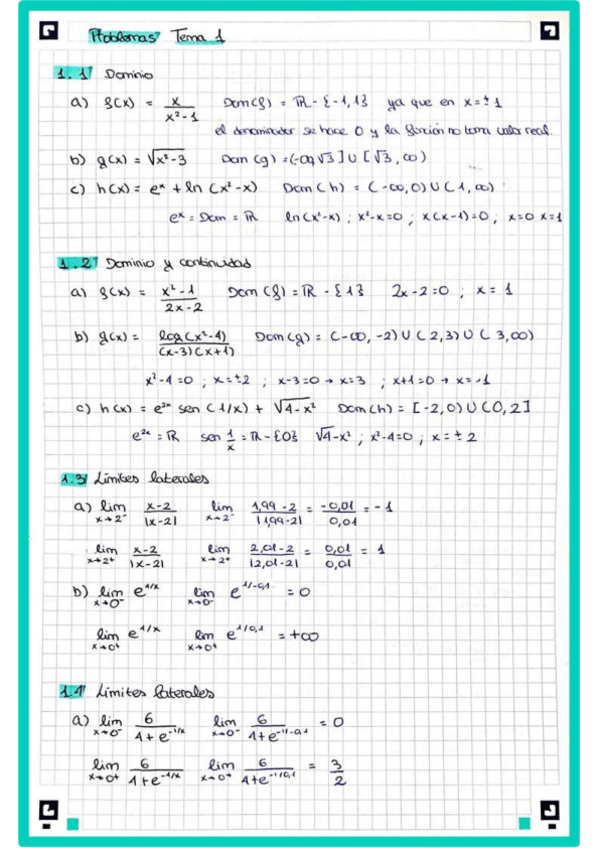 Problemas Tema 1
1.1 Dominio
a) f(x) = x/(x²-1) Dom(f) = ℝ - {-1,1} ya que en x = ±1
el denominador se hace 0 y la función no toma valor real.
b) g(x) = √(x²-3) Dom(g) = (-∞,√3] ∪ [√3, ∞)
c) h(x) = eˣ + ln(x²-x) Dom(h) = (-∞,0) ∪ (1,∞)
eˣ = Dom = ℝ ln(x²-x) ; x²-x=0 ; x(x-1)=0 ; x=0 x=1
1.2 Dominio y continuidad
a) f(x) = (x²-1)/(2x-2) Dom(f) = ℝ - {1} 2x-2=0 ; x = 1
b) g(x) = log(x²-4)/((x-3)(x+1)) Dom(g) = (-∞,-2) ∪ (2,3) ∪ (3,∞)
x²-4=0 ; x=±2 ; x-3=0 → x=3 ; x+1=0 → x=-1
c) h(x) = e²ˣ sen(1/x) + √(4-x²) Dom(h) = [-2,0) ∪ (0,2]
e²ˣ = ℝ sen 1/x = ℝ - {0} √4-x² ; x²-4=0 ; x = ±2
1.3 Límites laterales
a) lim x→2⁻ (x-2)/|x-2| lim x→2⁻ (1,99-2)/|1,99-2| = -0,01/0,01 = -1
lim x→2⁺ (x-2)/|x-2| lim x→2⁺ (2,01-2)/|2,01-2| = 0,01/0,01 = 1
b) lim x→0⁻ e^(1/x) lim x→0⁻ e^(1/-0,1) = 0
lim x→0⁺ e^(1/x) lim x→0⁺ e^(1/0,1) = +∞
1.4 Límites laterales
a) lim x→0⁻ 6/(1+e^(-1/x)) lim x→0⁻ 6/(1+e^(-1/-0,1)) = 0
lim x→0⁺ 6/(1+e^(-1/x)) lim x→0⁺ 6/(1+e^(-1/0,1)) = 3/2